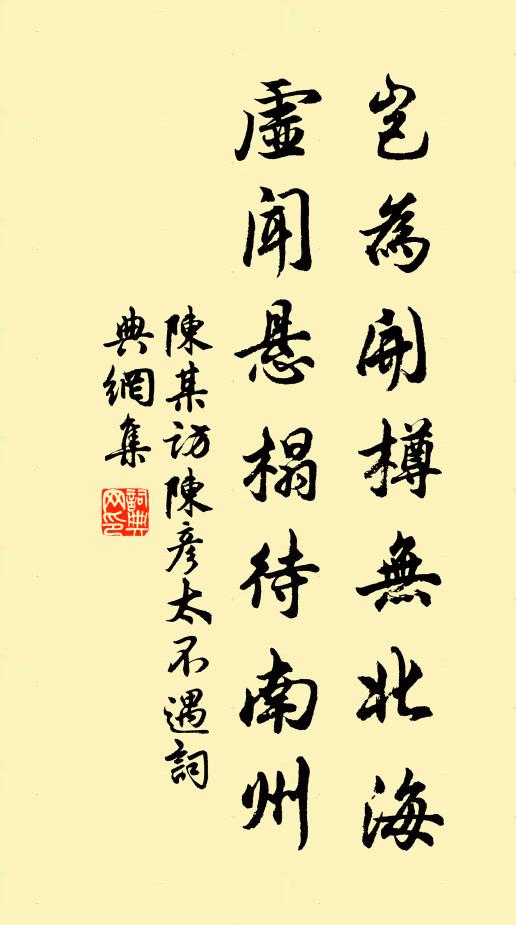 豈為開樽無北海
虛聞懸榻待南州
陳某訪陳彥太不遇詞
典網集
詞典網印